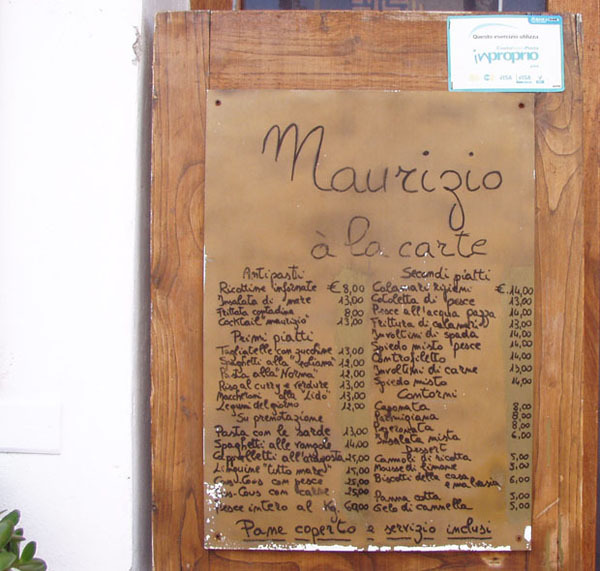 Questo esercizio utilizza
improprio
VISA
Maurizio
à la carte
Antipasti
Ricottine infornate € 8,00
Insalata di mare 13,00
Frittata contadina 8,00
Cocktail "maurizio" 13,00
Primi piatti
Tagliatelle con zucchine 13,00
Spaghetti alla "eoliana" 12,00
Pasta alla "Norma" 12,00
Riso al curry e verdure 13,00
Maccheroni alla "Lido" 13,00
Legumi del giorno 12,00
Su prenotazione
Pasta con le sarde 13,00
Spaghetti alle vongole 14,00
Cappelletti all'aragosta 25,00
Linguine "tutto mare" 15,00
Cous-Cous con pesce 25,00
Cous-Cous con carne 25,00
Pesce intero al Kg. 60,00
Secondi piatti
Calamari ripieni € 14,00
Cotoletta di pesce 13,00
Pesce all'acqua pazza 14,00
Frittura di calamari 13,00
Involtini di spada 14,00
Spiedo misto pesce 14,00
Controfiletto 14,00
Involtini di carne 13,00
Spiedo misto 14,00
Contorni
Caponata
Parmigiana
Peperonata
Insalata mista 6,00
Dessert
Cannoli di ricotta 5,00
Mousse di limone 5,00
Biscotti della casa 6,00
e malvasia
Panna cotta 5,00
Gelo di cannella 5,00
Pane coperto e servizio inclusi